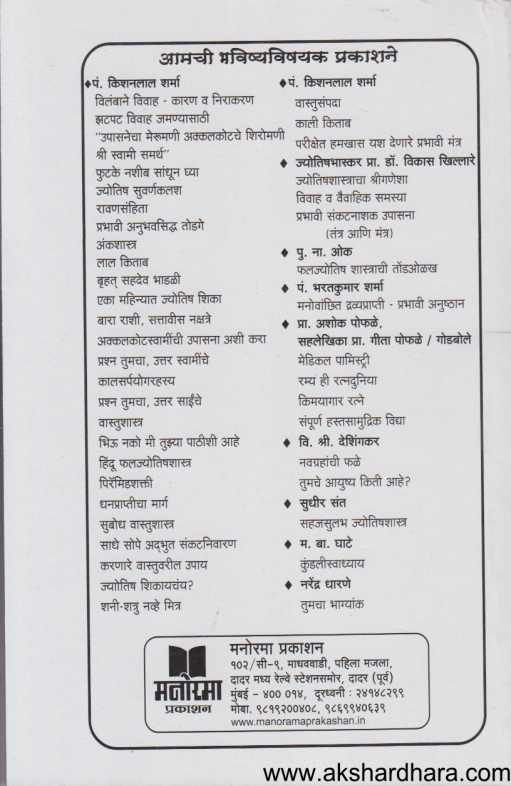 आमची भविष्यविषयक प्रकाशने
♦पं. किशनलाल शर्मा
विलंबाने विवाह - कारण व निराकरण
झटपट विवाह जमण्यासाठी
"उपासनेचा मेरूमणी अक्कलकोटचे शिरोमणी
श्री स्वामी समर्थ"
फुटके नशीब सांधून घ्या
ज्योतिष सुवर्णकलश
रावणसंहिता
प्रभावी अनुभवसिद्ध तोडगे
अंकशास्त्र
लाल किताब
बृहत् सहदेव भाडळी
एका महिन्यात ज्योतिष शिका
बारा राशी, सत्तावीस नक्षत्रे
अक्कलकोटस्वामींची उपासना अशी करा
प्रश्न तुमचा, उत्तर स्वामींचे
कालसर्पयोगरहस्य
प्रश्न तुमचा, उत्तर साईंचे
वास्तुशास्त्र
भिऊ नको मी तुझ्या पाठीशी आहे
हिंदू फलज्योतिषशास्त्र
पिरॅमिडशक्ती
धनप्राप्तीचा मार्ग
सुबोध वास्तुशास्त्र
साधे सोपे अद्भुत संकटनिवारण
करणारे वास्तुवरील उपाय
ज्योतिष शिकायचंय?
शनी-शत्रु नव्हे मित्र
♦पं. किशनलाल शर्मा
वास्तुसंपदा
काली किताब
परीक्षेत हमखास यश देणारे प्रभावी मंत्र
♦ ज्योतिषभास्कर प्रा. डॉ. विकास खिल्लारे
ज्योतिषशास्त्राचा श्रीगणेशा
विवाह व वैवाहिक समस्या
प्रभावी संकटनाशक उपासना
(तंत्र आणि मंत्र)
♦ पु. ना. ओक
फलज्योतिष शास्त्राची तोंडओळख
♦ पं. भरतकुमार शर्मा
मनोवांछित द्रव्यप्राप्ती - प्रभावी अनुष्ठान
♦ प्रा. अशोक पोफळे,
सहलेखिका प्रा. गीता पोफळे / गोडबोले
मेडिकल पामिस्ट्री
रम्य ही रत्नदुनिया
किमयागार रत्ने
संपूर्ण हस्तसामुद्रिक विद्या
♦ वि. श्री. देशिंगकर
नवग्रहांची फळे
तुमचे आयुष्य किती आहे?
♦ सुधीर संत
सहजसुलभ ज्योतिषशास्त्र
♦ म. बा. घाटे
कुंडलीस्वाध्याय
♦ नरेंद्र धारणे
तुमचा भाग्यांक
मनोरमा
प्रकाशन
मनोरमा प्रकाशन
१०२/सी-९, माधववाडी, पहिला मजला,
दादर मध्य रेल्वे स्टेशनसमोर, दादर (पूर्व)
मुंबई - ४०० ०१४, दूरध्वनी : २४१४८२९९
मोबा. ९८१९२००४०८, ९८६९९४०६३९
www.manoramaprakashan.in
www.akshardhara.com